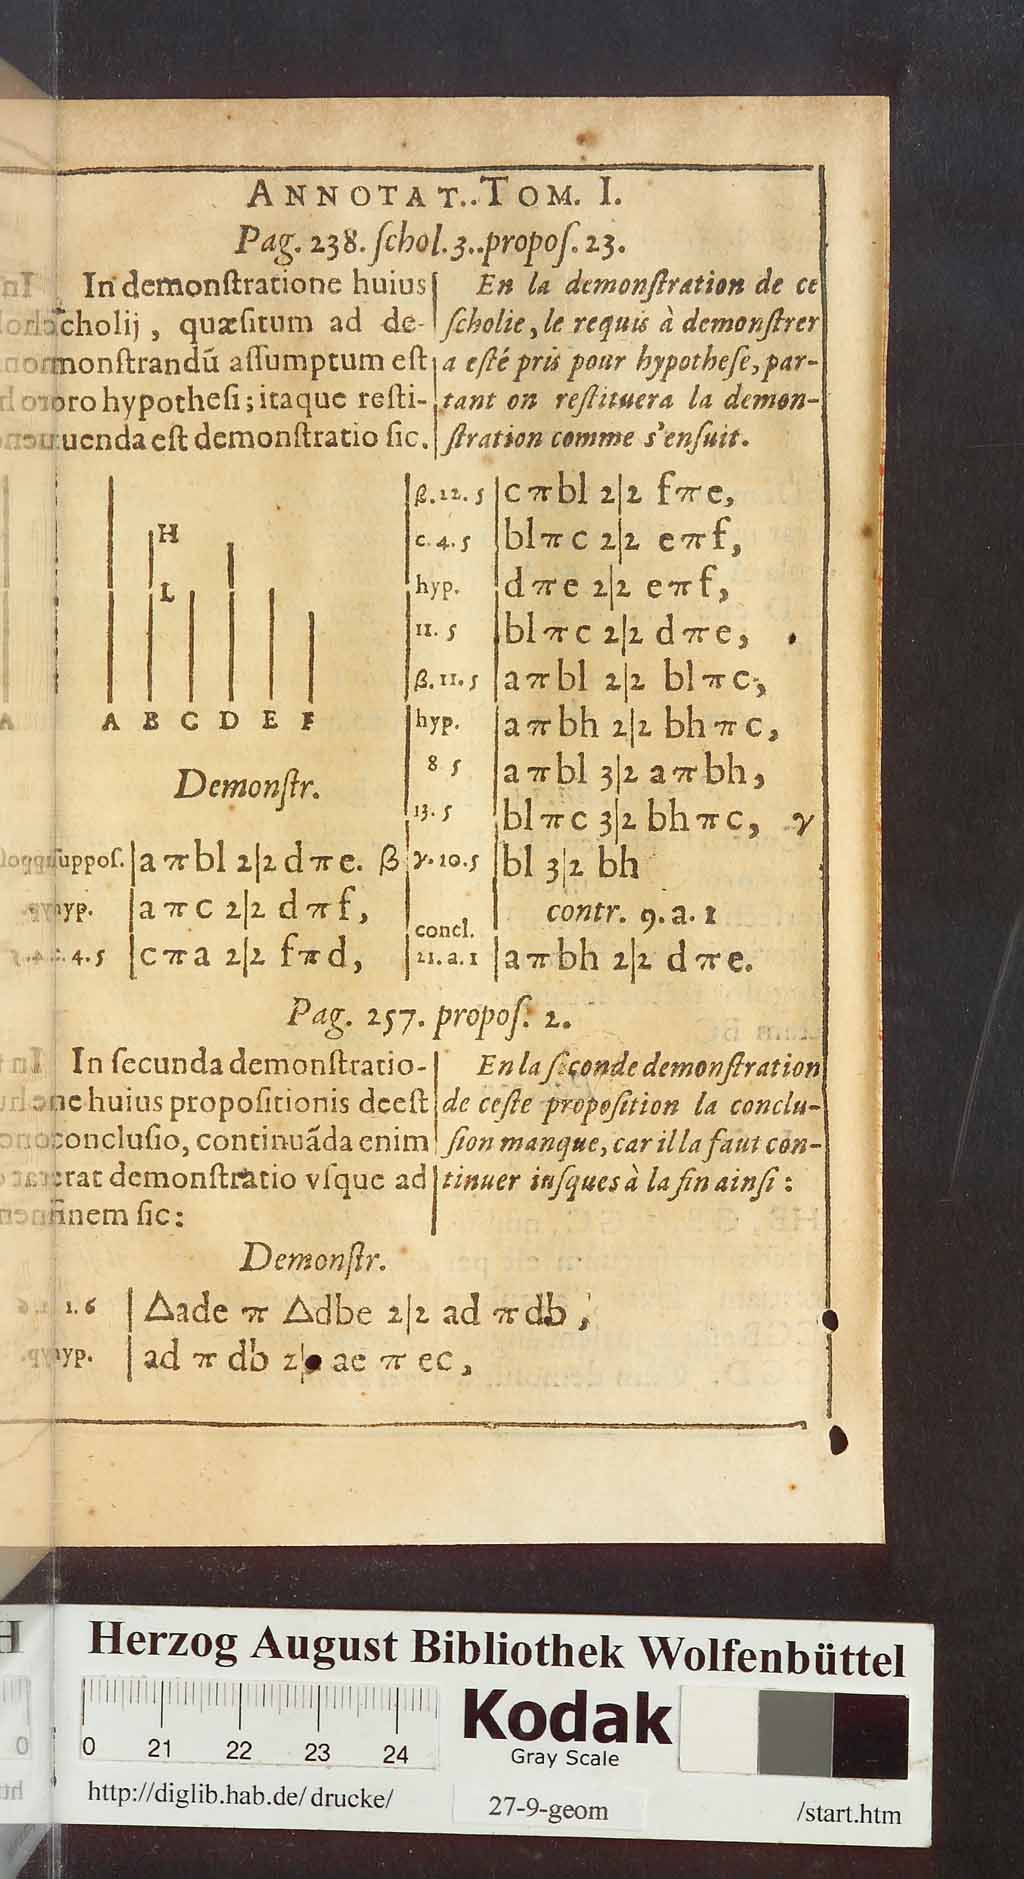 ANNOTAT..TOM. I.
Pag. 238. ſchol. 3..propoſ. 23.
In demonſtratione huius
ſcholij, quæſitum ad de-
monſtrandū aſſumptum eſt
pro hypotheſi; itaque reſti-
tuenda eſt demonſtratio ſic.
En la demonſtration de ce
ſcholie, le requis à demonſtrer
a eſté pris pour hypotheſe, par-
tant on reſtituera la demon-
ſtration comme s'enſuit.
H
L
A B C D E F
Demonſtr.
ſuppoſ. | a π bl 2|2 d π e. β
hyp. | a π c 2|2 d π f,
c. 4. 5 | c π a 2|2 f π d,
β. 12. 5 | c π bl 2|2 f π e,
c. 4. 5 | bl π c 2|2 e π f,
hyp. | d π e 2|2 e π f,
11. 5 | bl π c 2|2 d π e,
β. 11. 5 | a π bl 2|2 bl π c,
hyp. | a π bh 2|2 bh π c,
8 5 | a π bl 3|2 a π bh,
13. 5 | bl π c 3|2 bh π c, γ
γ. 10. 5 | bl 3|2 bh
contr. 9. a. 1
concl.
21. a. 1 | a π bh 2|2 d π e.
Pag. 257. propoſ. 2.
In ſecunda demonſtratio-
ne huius propoſitionis deeſt
concluſio, continuāda enim
erat demonſtratio vſque ad
finem ſic:
En la ſeconde demonſtration
de ceſte propoſition la conclu-
ſion manque, car il la faut con-
tinuer iuſques à la fin ainſi :
Demonſtr.
1. 6 | △ade π △dbe 2|2 ad π db,
hyp. | ad π db 2| ae π ec,
Herzog August Bibliothek Wolfenbüttel
Kodak
Gray Scale
0 21 22 23 24
http://diglib.hab.de/drucke/ 27-9-geom /start.htm